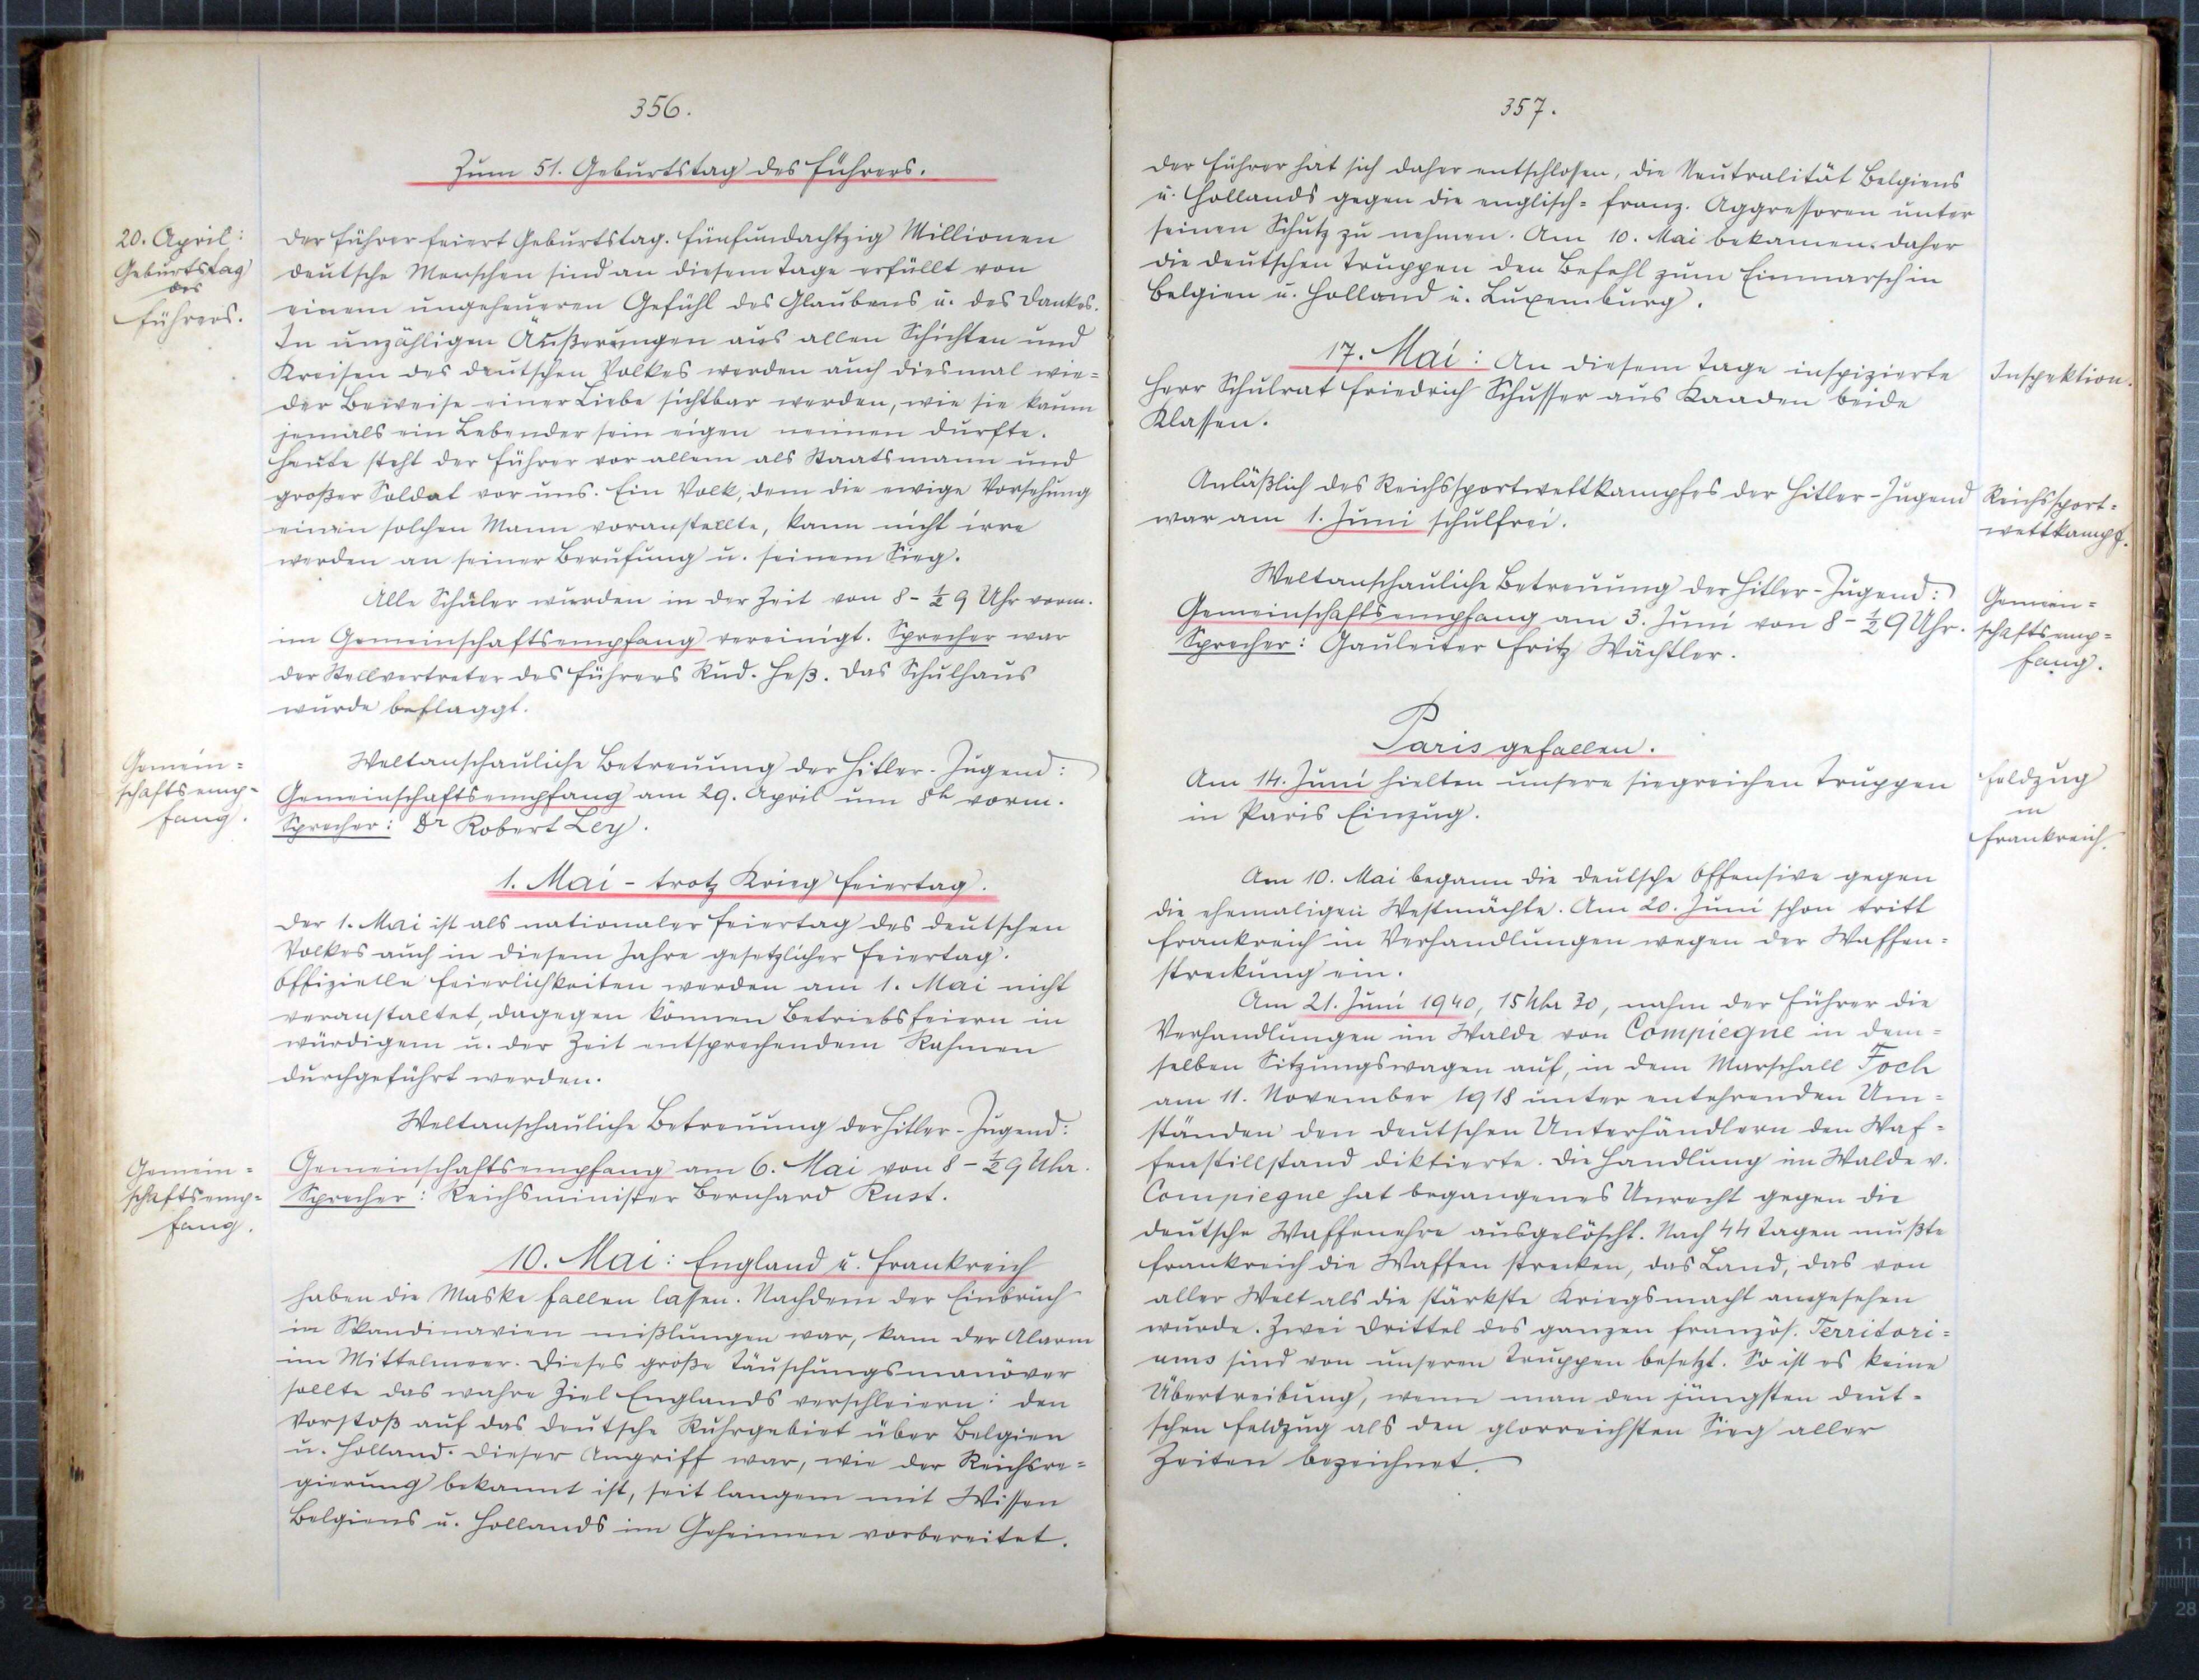 356.
Zum 51. Geburtstag des Führers.
20. April:
Geburtstag
des
Führers.
Der Führer feiert Geburtstag. Fünfundachtzig Millionen
deutsche Menschen sind an diesem Tage erfüllt von
einem ungeheueren Gefühl des Glaubens u. des Dankes.
In unzähligen Äußerungen aus allen Schichten und
Kreisen des deutschen Volkes werden auch diesmal wie=
der Beweise einer Liebe sichtbar werden, wie sie kaum
jemals ein Lebender sein eigen nennen durfte.
Heute steht der Führer vor allem als Staatsmann und
großer Soldat vor uns. Ein Volk, dem die ewige Vorsehung
einen solchen Mann voranstellte, kann nicht irre
werden an seiner Berufung u. seinem Sieg.
Alle Schüler wurden in der Zeit von 8-½ 9 Uhr vorm.
im Gemeinschaftsempfang vereinigt. Sprecher war
der Stellvertreter des Führers Rud. Heß. Das Schulhaus
wurde beflaggt.
Gemein=
schaftsemp-
fang.
Weltanschauliche Betreuung der Hitler-Jugend:
Gemeinschaftsempfang am 29. April um 8h vorm.
Sprecher: Dr Robert Ley.
1. Mai - trotz Krieg Feiertag.
Der 1. Mai ist als nationaler Feiertag des deutschen
Volkes auch in diesem Jahre gesetzlicher Feiertag.
Offizielle Feierlichkeiten werden am 1. Mai nicht
veranstaltet, dagegen können Betriebsfeiern in
würdigem u. der Zeit entsprechendem Rahmen
durchgeführt werden.
Weltanschauliche Betreuung der Hitler-Jugend:
Gemein=
schaftsemp=
fang.
Gemeinschaftsempfang am 6. Mai von 8-½ 9 Uhr.
Sprecher: Reichsminister Bernhard Rust.
10. Mai: England u. Frankreich
haben die Maske fallen lassen. Nachdem der Einbruch
in Skandinavien mißlungen war, kam der Alarm
im Mittelmeer. Dieses große Täuschungsmanöver
sollte das wahre Ziel Englands verschleiern: den
Vorstoß auf das deutsche Ruhrgebiet über Belgien
u. Holland. Dieser Angriff war, wie der Reichsre=
gierung bekannt ist, seit langem mit Wissen
Belgiens u. Hollands im Geheimen vorbereitet.
357.
Der Führer hat sich daher entschlosen, die Neutralität Belgiens
u. Hollands gegen die englisch=franz. Aggressoren unter
seinen Schutz zu nehmen. Am 10. Mai bekamen daher
die deutschen Truppen den Befehl zum Einmarsch in
Belgien u. Holland u. Luxemburg.
17. Mai: An diesem Tage inspizierte
Herr Schulrat Friedrich Schusser aus Kaaden beide
Klassen.
Inspektion.
Anläßlich des Reichssportwettkampfes der Hitler-Jugend
war am 1. Juni schulfrei.
Reichssport=
wettkampf.
Weltanschauliche Betreuung der Hitler-Jugend:
Gemeinschaftsempfang am 3. Juni von 8-½ 9 Uhr.
Sprecher: Gauleiter Fritz Wächtler.
Gemein=
schaftsemp=
fang.
Paris gefallen.
Am 14. Juni hielten unsere siegreichen Truppen
in Paris Einzug.
Feldzug
in
Frankreich.
Am 10. Mai begann die deutsche Offensive gegen
die ehemaligen Westmächte. Am 20. Juni schon tritt
Frankreich in Verhandlungen wegen der Waffen=
streckung ein.
Am 21. Juni 1940, 15 Uhr 30, nahm der Führer die
Verhandlungen im Walde von Compiegne in dem=
selben Sitzungswagen auf, in dem Marschall Foch
am 11. November 1918 unter entehrenden Um=
ständen den deutschen Unterhändlern den Waf=
fenstillstand diktierte. Die Handlung im Walde v.
Compiegne hat begangenes Unrecht gegen die
deutsche Waffenehre ausgelöscht. Nach 44 Tagen mußte
Frankreich die Waffen strecken, das Land, das von
aller Welt als die stärkste Kriegsmacht angesehen
wurde. Zwei Drittel des ganzen französ. Territori=
ums sind von unseren Truppen besetzt. So ist es keine
Übertreibung, wenn man den jüngsten deut=
schen Feldzug als den glorreichsten Sieg aller
Zeiten bezeichnet.
11
28